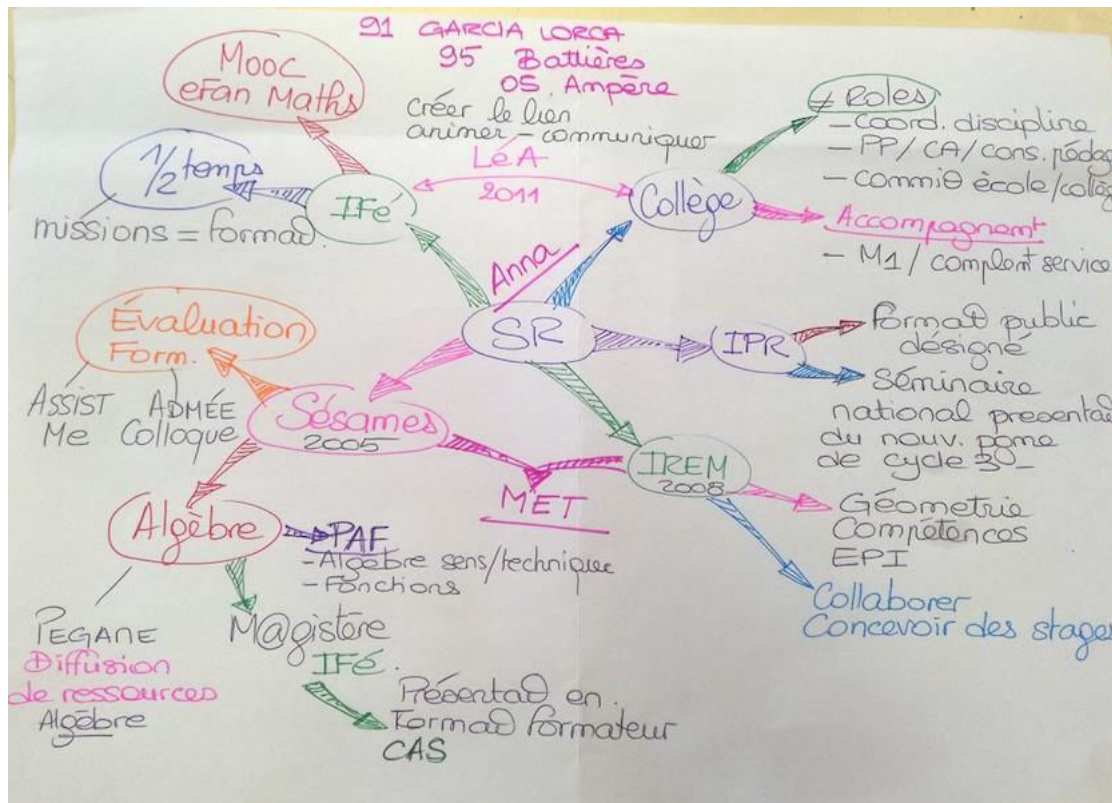 91 GARCIA LORCA
95 Battières
05 Ampère
Mooc
eFan Maths
créer le lien
animer - communiquer
≠ Roles
- Coord. discipline
- PP / CA / cons. pédag
- commiθ école/collèg
1/2 temps
missions = formaθ
IFé
LéA
2011
Collège
Accompagnemt
- M1 / complemt service
Anna
SR
IPR
Formaθ public
désigné
Séminaire
national presentaθ
du nouv. pgme
de cycle 3
Évaluation
Form.
ASSIST
Me
ADMÉE
Colloque
Sésames
2005
MET
IREM
2008
Géometrie
Compétences
EPI
Collaborer
Concevoir des stages
Algèbre
PAF
- Algèbre sens/technique
- Fonctions
PEGANE
Diffusion
de ressources
Algèbre
M@gistère
IFé.
Présentaθ en
Formaθ formateur
CAS